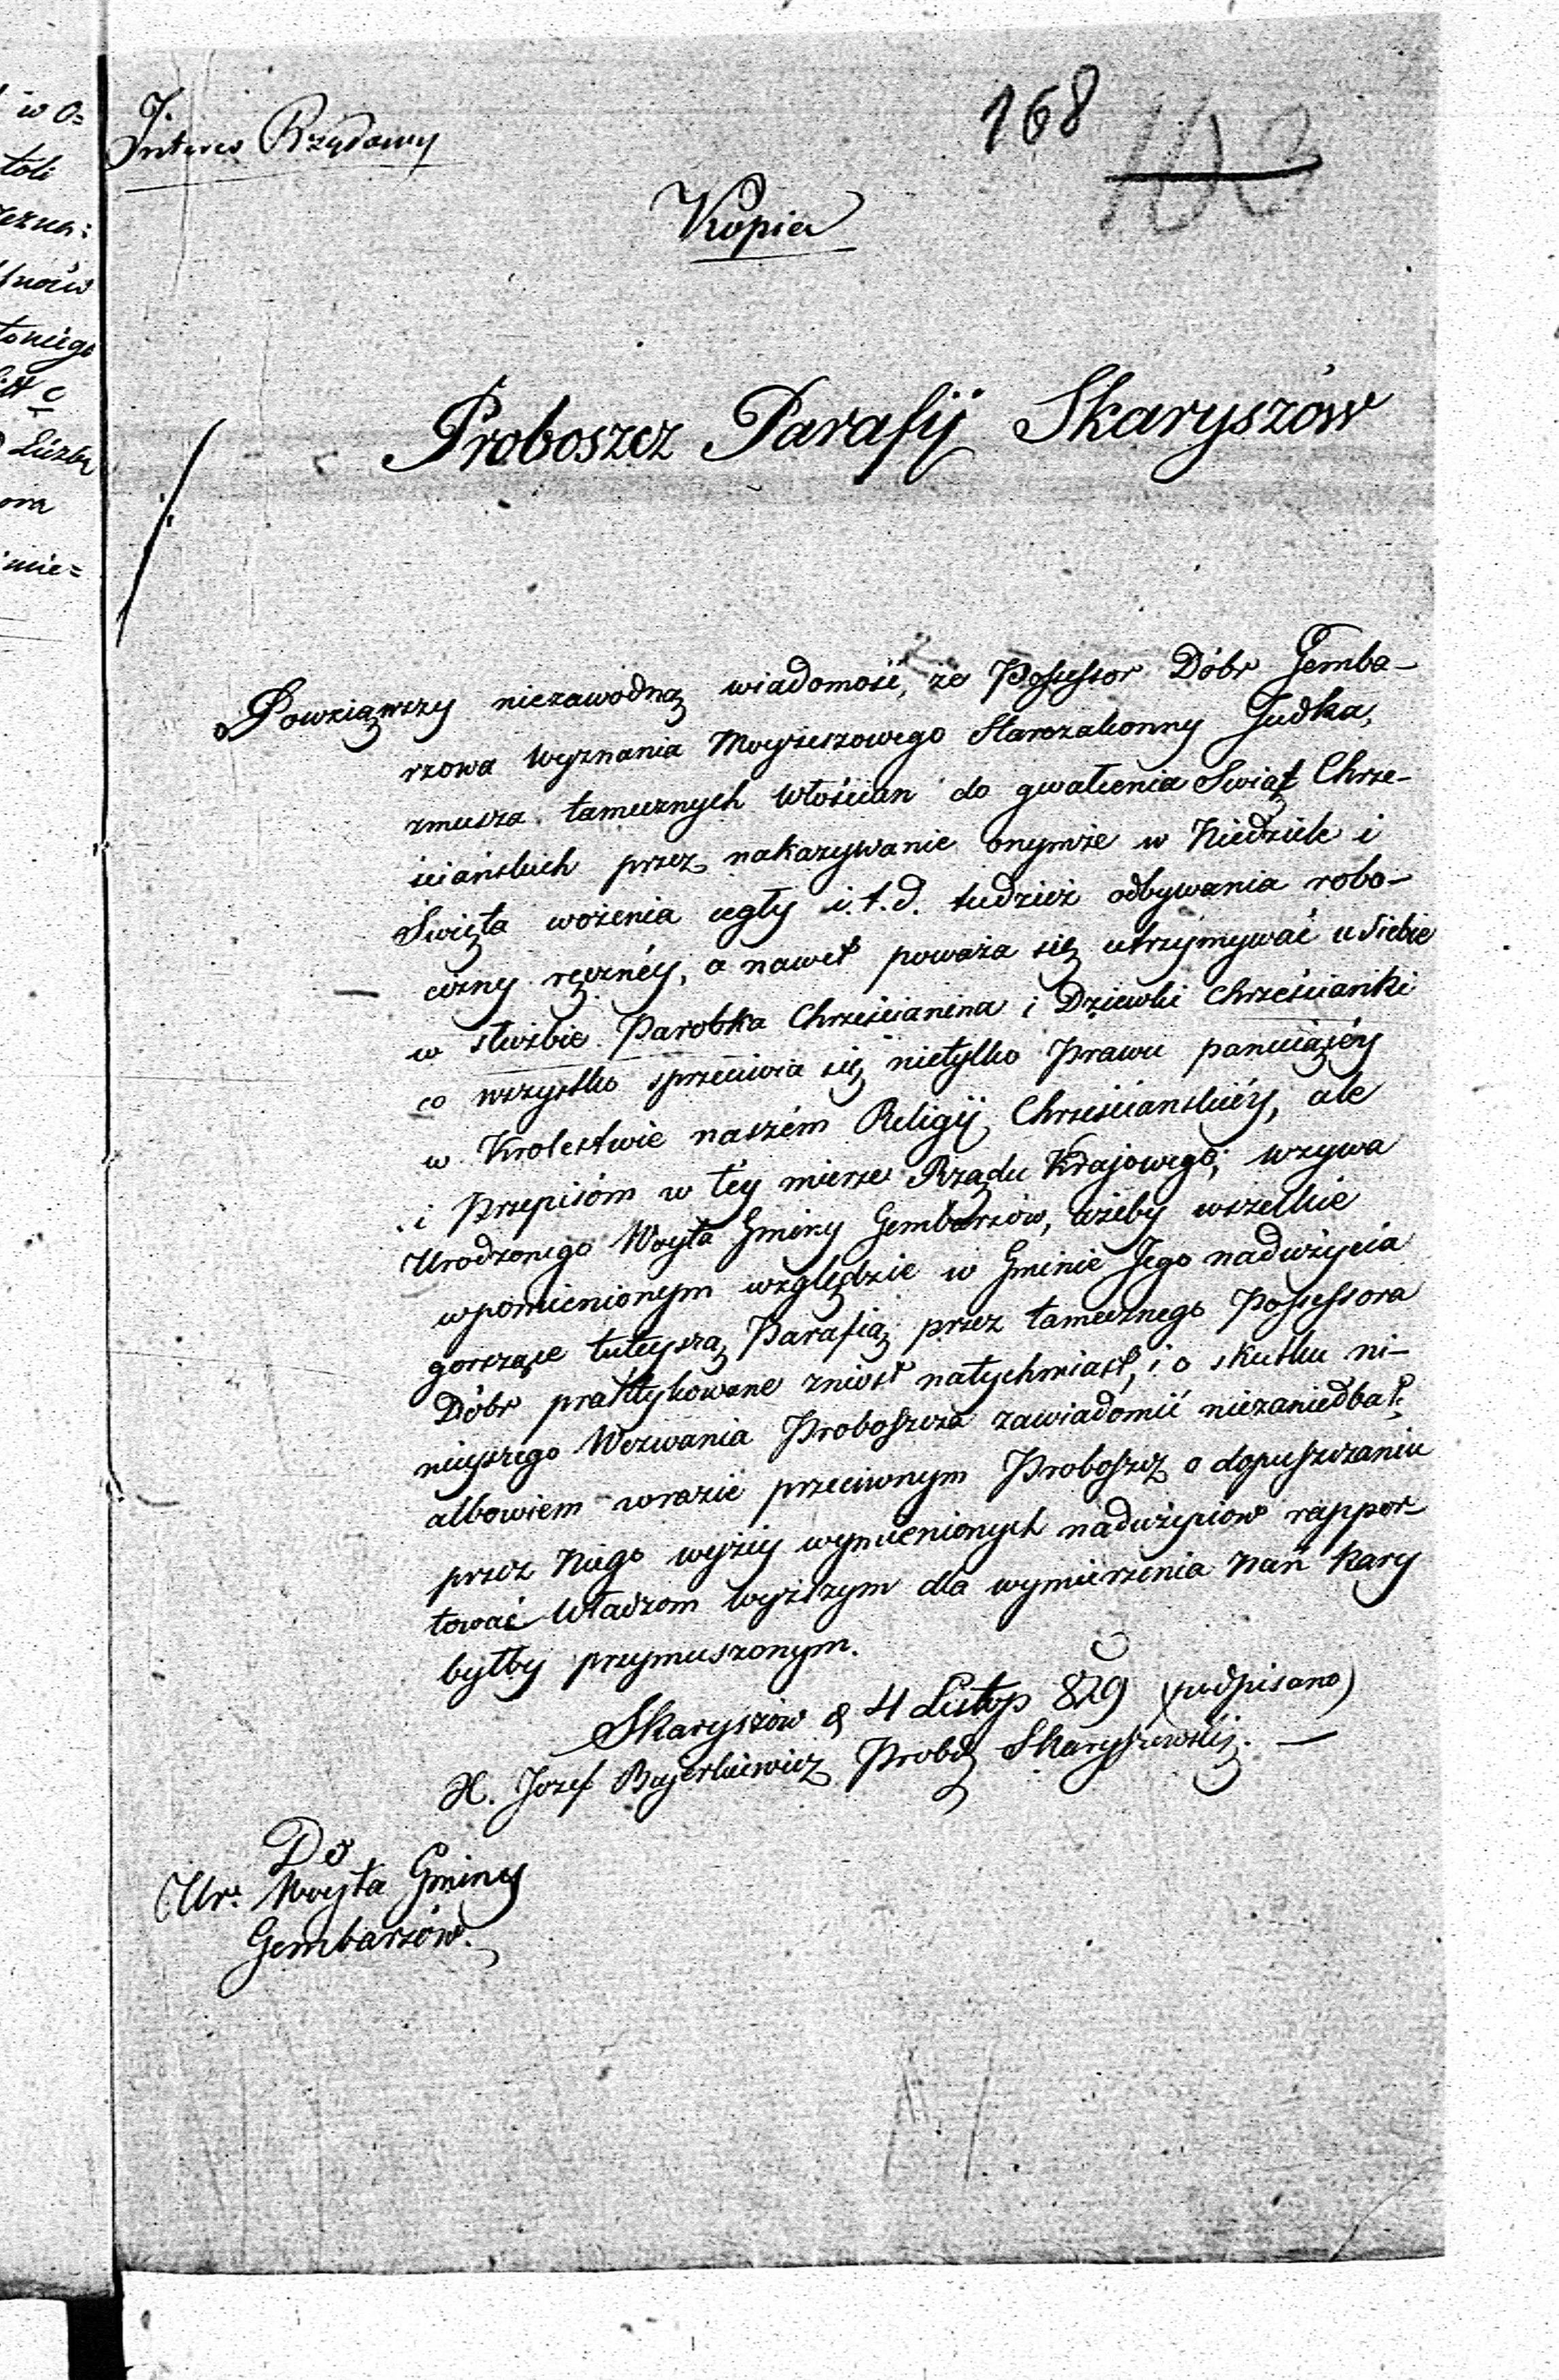 w O=
toli
toniego
Liczba
ona
mie=
Interes Rządowy
168
103
Kopia
Proboszcz Parafij Skaryszów
Powziąwszy niezawodną wiadomość, że Possessor Dóbr Gemba-
rzowa wyznania Moyżeszowego Starozakonny Judka,
zmusza tamecznych Włościan do gwałcenia Swiąt Chrze-
ściańskich przez nakazywanie onymże w Niedziele i
Święta wożenia cegły i.t.d. tudzież odbywania robo-
cizny ręcznéy, a nawet poważa się utrzymywać u siebie
w służbie Parobka Chrześcianina i Dziewki Chrześcianki
co wszystko sprzeciwia się nietylko Prawu panuiącéy
w Krolestwie naszém Religij Chrześcianskiéy, ale
i Przepisóm w téy mierze Rządu Krajowego; wzywa
Urodzonego Woyta Gminy Gembarzów, ażeby wszelkie
wpomienionym względzie w Gminie Jego nadużycia
gorszące tuteyszą Parafią przez tamecznego Possessora
Dóbr praktykowane zniosł natychmiast, i o skutku ni-
nieyszego Wezwania Proboszcza zawiadomić niezaniedbał;
albowiem wrazie przeciwnym Proboszcz o dopuszczaniu
przez Niego wyżéy wymienionych nadużyciow rappor-
tować Władzom Wyższym dla wymierzenia nań kary
byłby przymuszonym.
Skaryszów d 4 Listop 829 (podpisano)
X. Jozef Bajerkiewicz Probos Skaryszewski. —
Do
Ur: Woyta Gminy
Gembarzów.